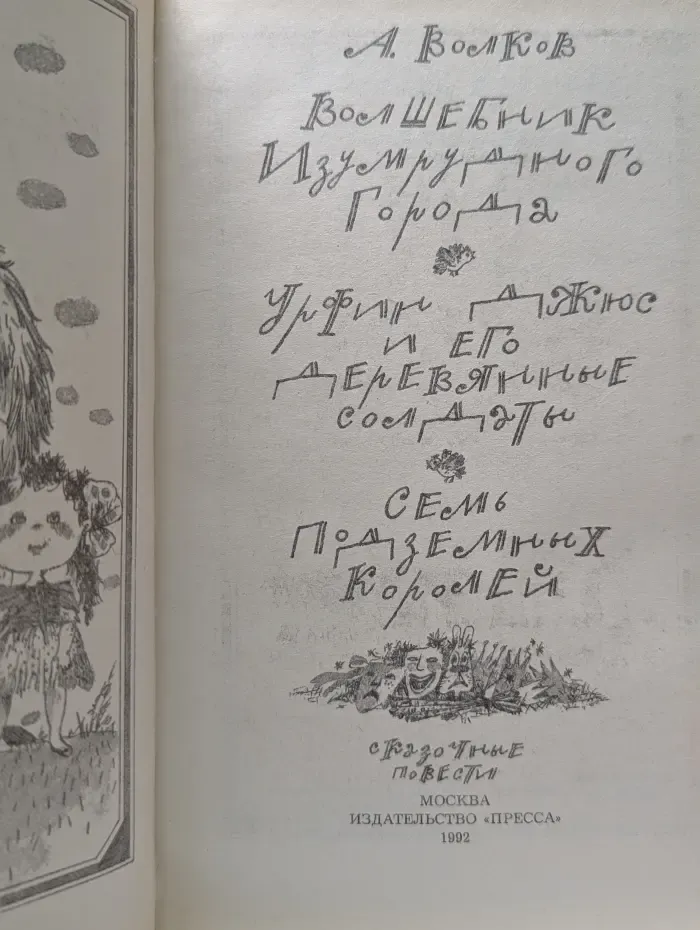 А. Волков
Волшебник
Изумрудного
Города
Урфин Джюс
и его
деревянные
солдаты
Семь
Подземных
Королей
сказочные
повести
МОСКВА
ИЗДАТЕЛЬСТВО «ПРЕССА»
1992